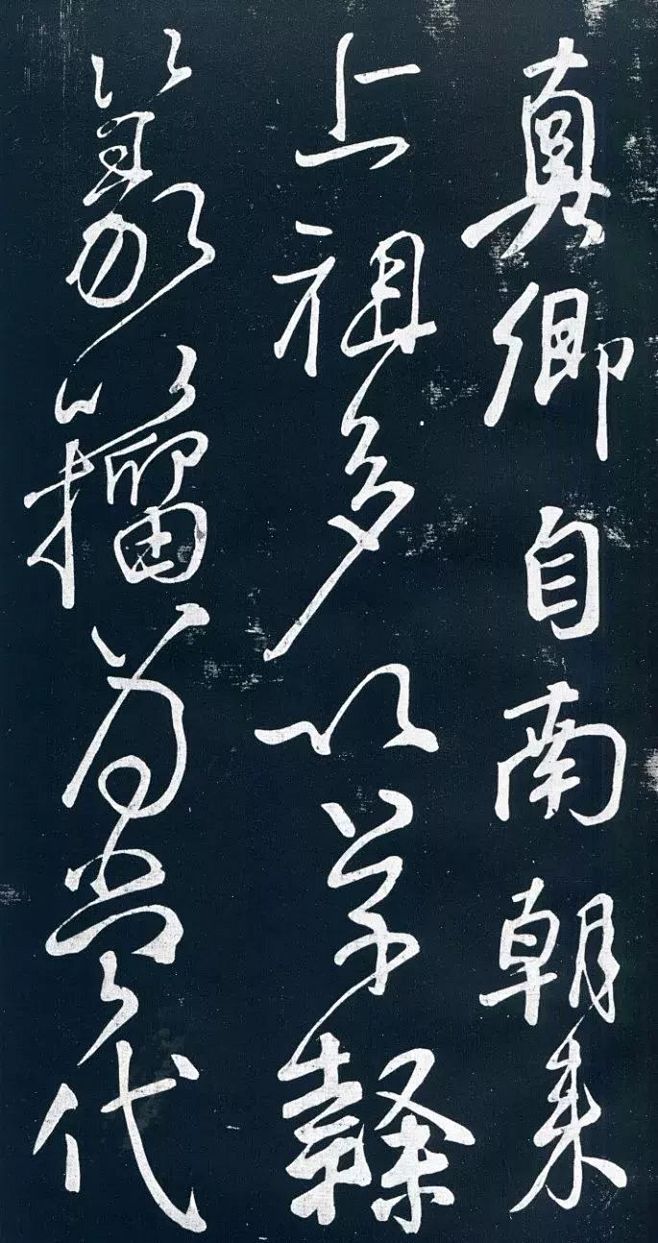 真卿自南朝来
上祖多以草隸
篆籀為當代